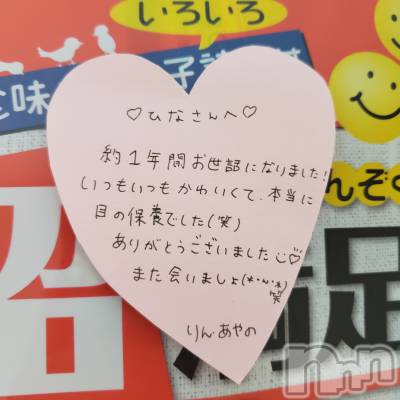 いろいろ
味
♡ひなさんへ♡
約1年間お世話になりました!
いつもいつもかわいくて、本当に
目の保養でした(笑)
ありがとうございました
また会いましょ
笑
りんあやの
んぞく
足